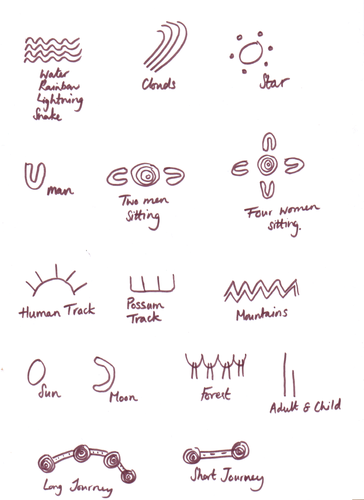 Water
Rainbow
Lightning
Snake
Clouds
Star
man
Two men
Sitting
Four women
Sitting.
Human Track
Possum
Track
Mountains
Sun
Moon
Forest
Adult & Child
Long Journey
Short Journey